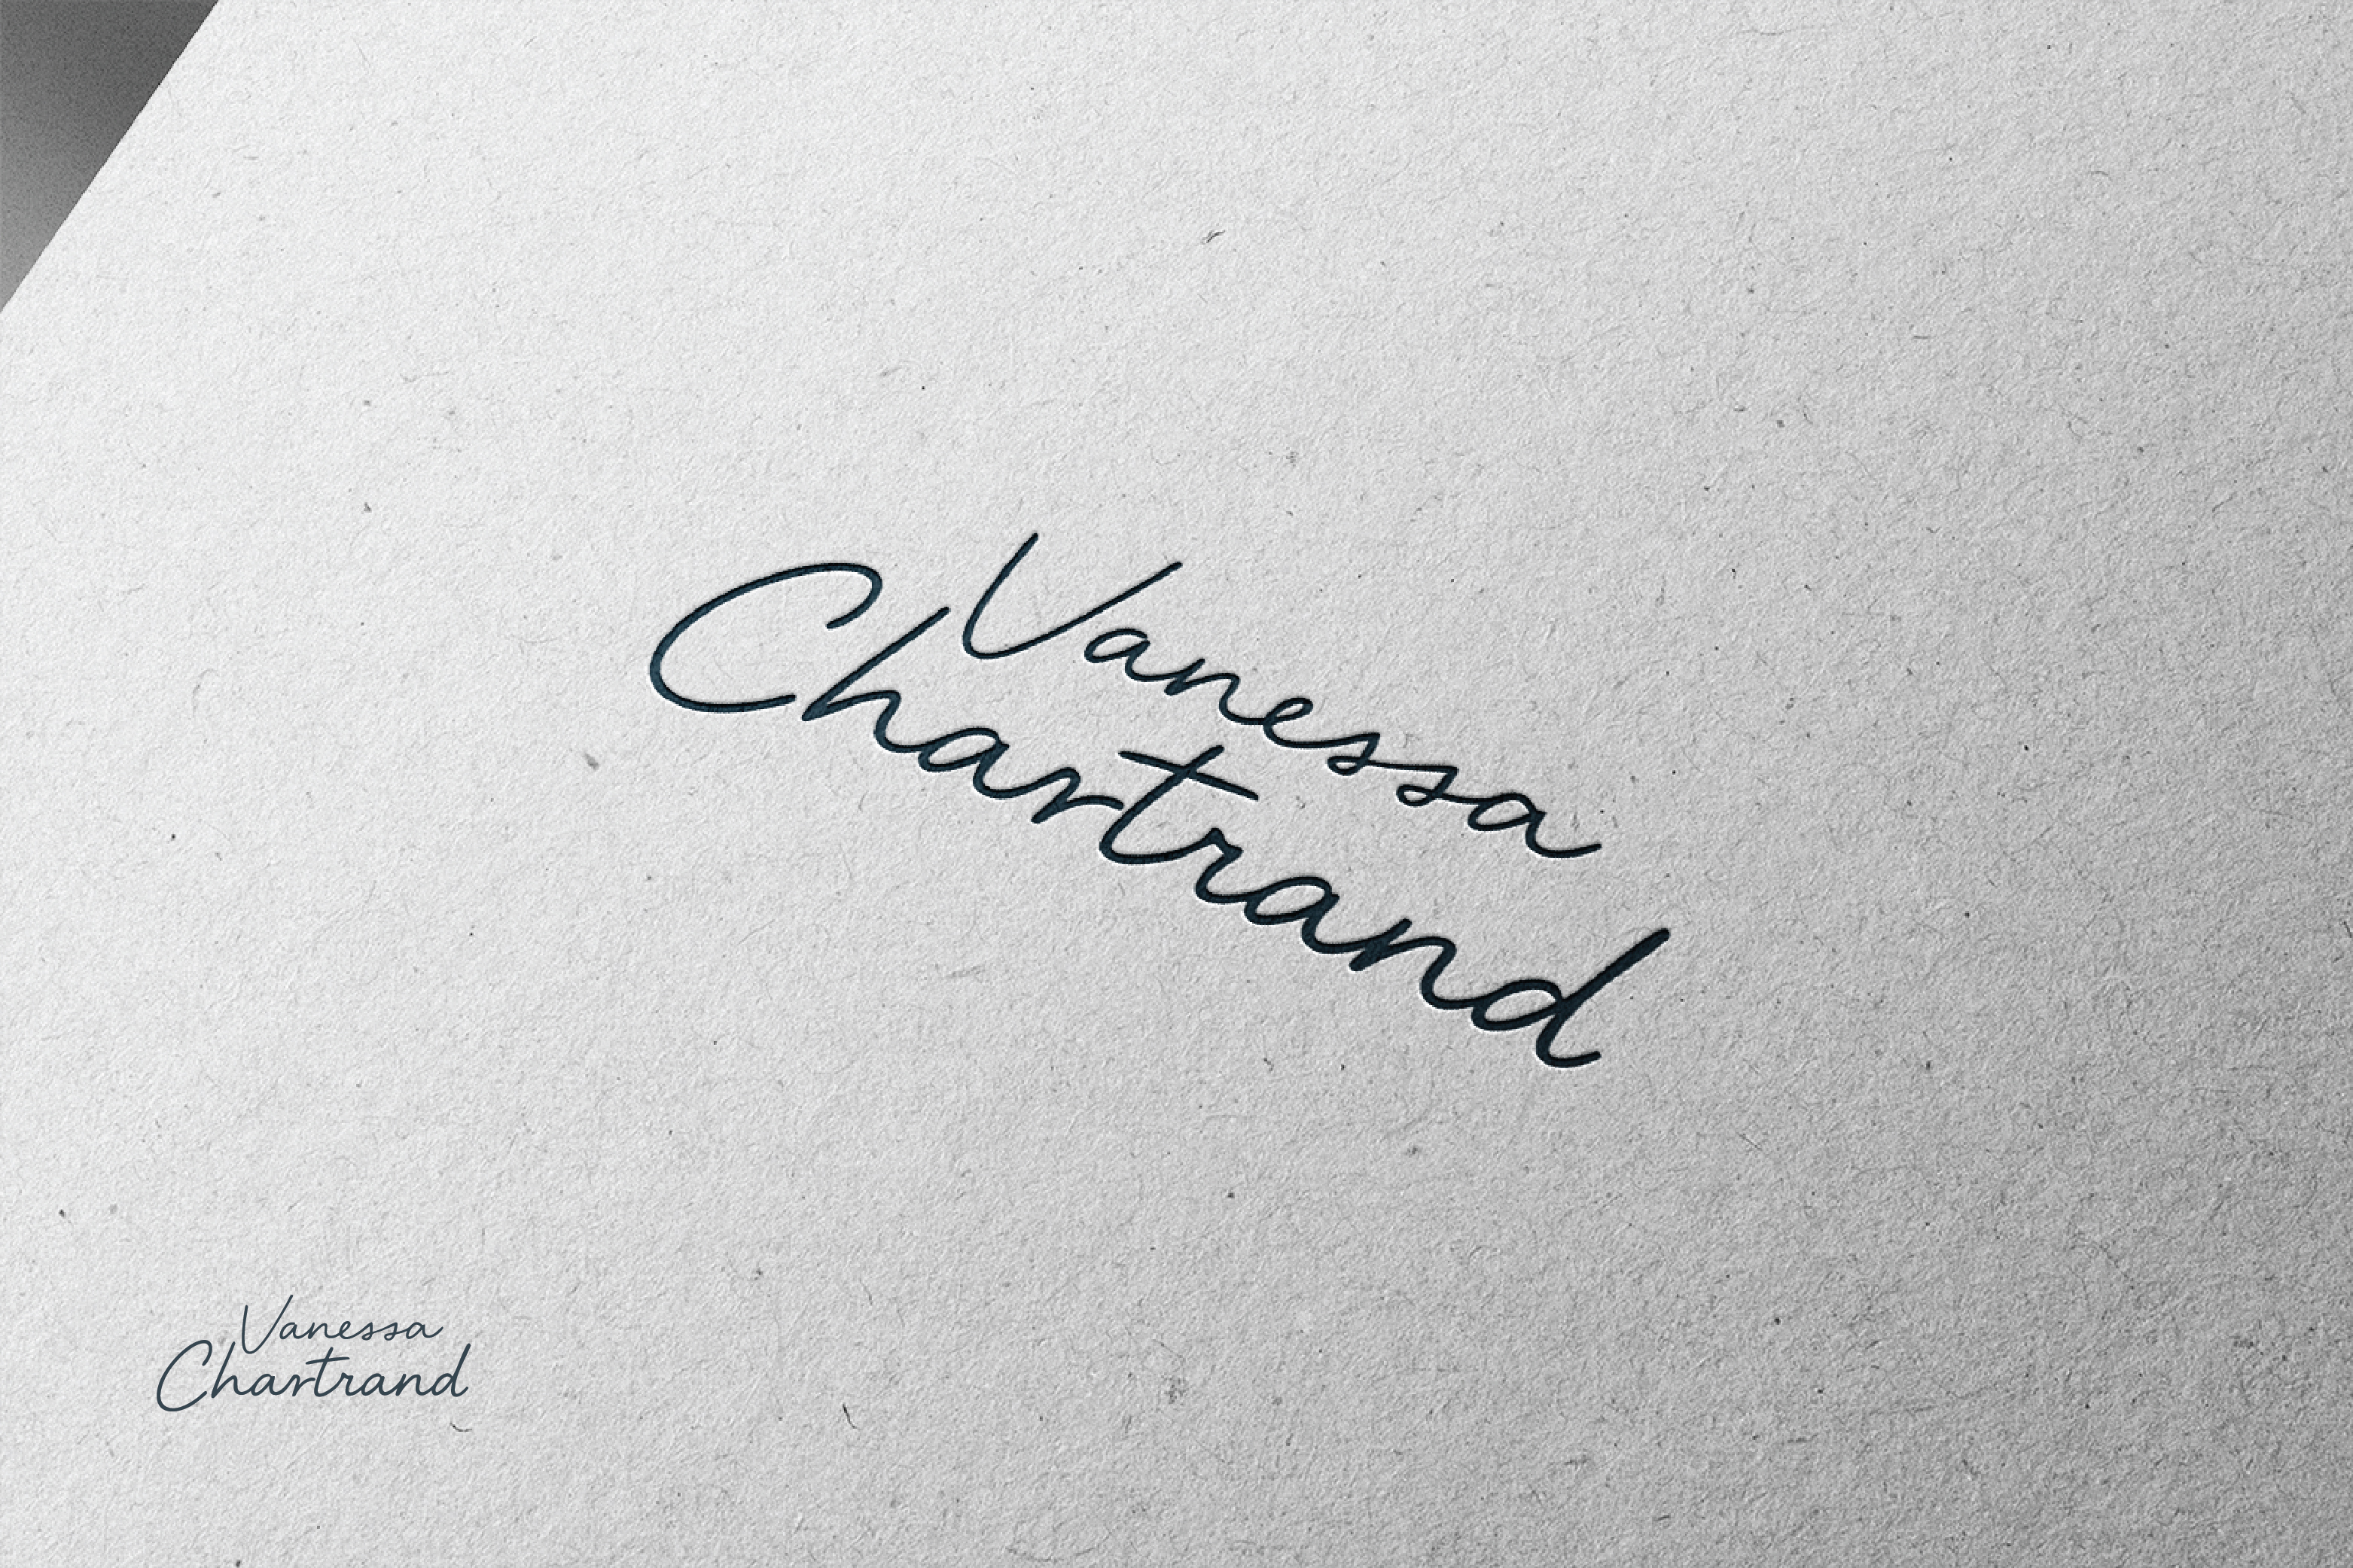 Vanessa
Chartrand
Vanessa
Chartrand